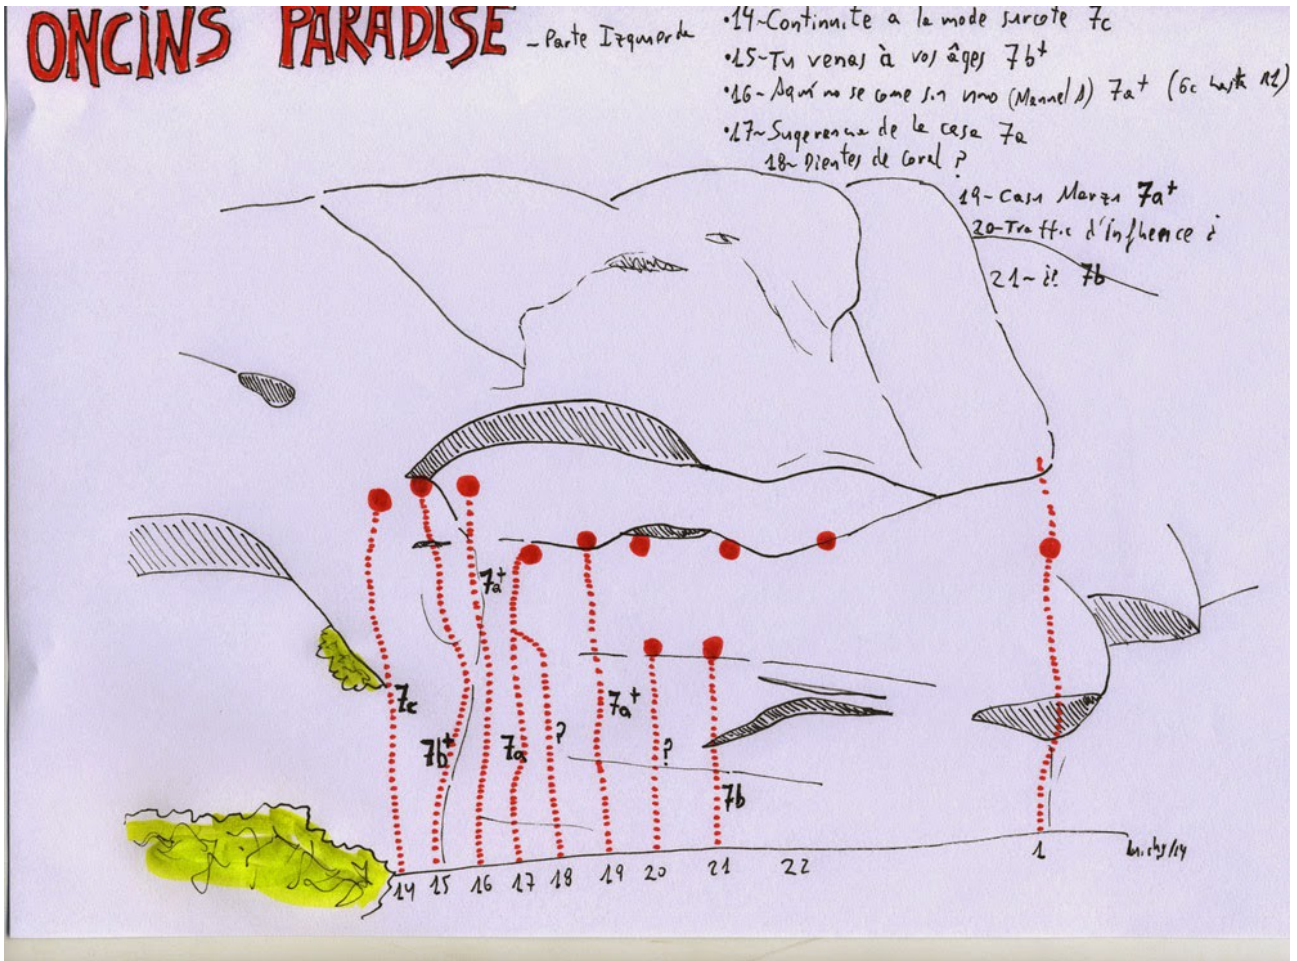 ONCINS PARADISE - Parte Izquierda
•14-Continuite a la mode surcote 7c
•15-Tu venas à vos âges 7b+
•16-Aquí no se come sin vino (Manuel S) 7a+ (6c hasta R1)
•17-Sugerencia de la casa 7a
18-Dientes de coral ?
19-Casa Marza 7a+
20-Traffic d'influence ¿
21-¿? 7b
7a+
7c
7b+
7a
?
7a+
?
7b
14 15 16 17 18 19 20 21 22 1